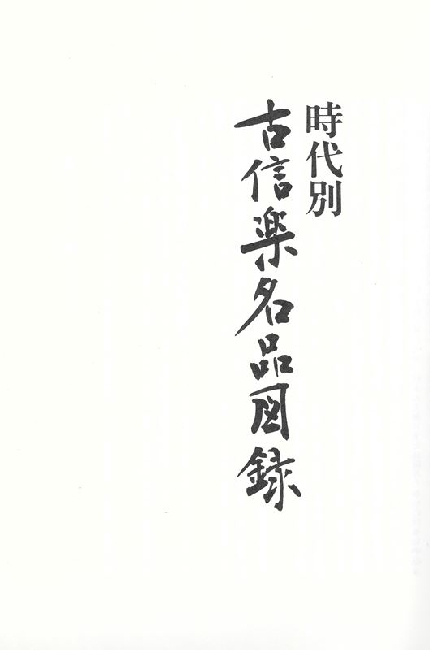 時代別
古信楽名品図録